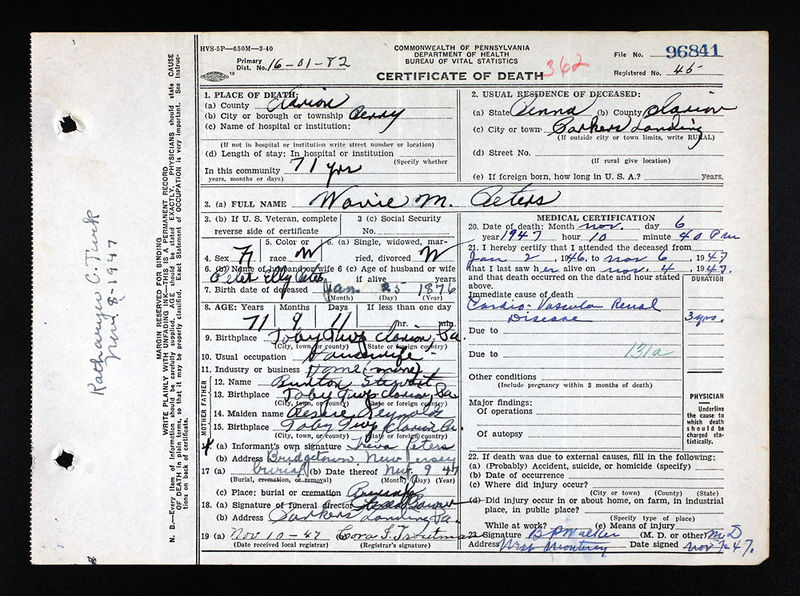 HVS-5P—650M—3-40
COMMONWEALTH OF PENNSYLVANIA
DEPARTMENT OF HEALTH
BUREAU OF VITAL STATISTICS
File No. 96841
Primary
Dist. No. 16-01-82
CERTIFICATE OF DEATH
362
Registered No. 45
1. PLACE OF DEATH:
(a) County Clarion
(b) City or borough or township Perry
(c) Name of hospital or institution:
(If not in hospital or institution write street number or location)
(d) Length of stay: In hospital or institution
(Specify whether
In this community 71 yrs
years, months or days)
2. USUAL RESIDENCE OF DECEASED:
(a) State Penna (b) County Clarion
(c) City or town Parkers Landing
(If outside city or town limits, write RURAL)
(d) Street No.
(If rural give location)
(e) If foreign born, how long in U. S. A.? years.
3. (a) FULL NAME M. Peters
3. (b) If U. S. Veteran, complete
reverse side of certificate
3 (c) Social Security
No.
4. Sex F
5. Color or
race W
6. (a) Single, widowed, mar-
ried, divorced W
6. (b) Name of husband or wife
6 (c) Age of husband or wife
if alive years
7. Birth date of deceased Jan. 25 1876
(Month) (Day) (Year)
8. AGE: Years Months Days If less than one day
71 9 11 hr. min.
9. Birthplace Toby Twp Clarion, Pa.
(City, town, or county) (State or foreign country)
10. Usual occupation Housewife
11. Industry or business Home (mine)
12. Name Stewart
13. Birthplace Toby Twp Clarion Pa
(City, town, or county) (State or foreign country)
14. Maiden name Reynolds
15. Birthplace Toby Twp Clarion Pa.
(City, town, or county) (State or foreign country)
MOTHER FATHER
(a) Informant's own signature Peters
(b) Address Bridgetown, New Jersey
17 (a) burial (b) Date thereof Nov. 9 47
(Burial, cremation, or removal) (Month) (Day) (Year)
(c) Place: burial or cremation
18. (a) Signature of funeral director
(b) Address Parkers Landing Pa.
19 (a) Nov 10-47 Cora S. Troutman
(Date received local registrar) (Registrar's signature)
MEDICAL CERTIFICATION
20. Date of death: Month Nov. day 6
year 1947 hour 10 minute 40 P m
21. I hereby certify that I attended the deceased from
Jan 2, 1946, to Nov 6, 1947
that I last saw her alive on Nov. 4 1947.
and that death occurred on the date and hour stated
above.
DURATION
Immediate cause of death
Cardio-Vascular Renal
Disease 3 yrs.
Due to
Due to 131a
Other conditions
(Include pregnancy within 3 months of death)
Major findings:
Of operations
Of autopsy
PHYSICIAN
Underline
the cause
to which
death
should be
charged sta-
tistically.
22. If death was due to external causes, fill in the following:
(a) (Probably) Accident, suicide, or homicide (specify)
(b) Date of occurrence
(c) Where did injury occur?
(City or town) (County) (State)
(d) Did injury occur in or about home, on farm, in industrial
place, in public place?
(Specify type of place)
While at work? (e) Means of injury
23. Signature B P Walker (M. D. or other) M D
Address West Monterey Date signed Nov 7-47.
Katharyn C. Turk
Nov 8-1947
MARGIN RESERVED FOR BINDING
WRITE PLAINLY WITH UNFADING INK—THIS IS A PERMANENT RECORD
N. B.—Every item of information should be carefully supplied. AGE should be stated EXACTLY. PHYSICIANS should state CAUSE
OF DEATH in plain terms, so that it may be properly classified. Exact Statement of OCCUPATION is very important. See instruc-
tions on back of certificate.